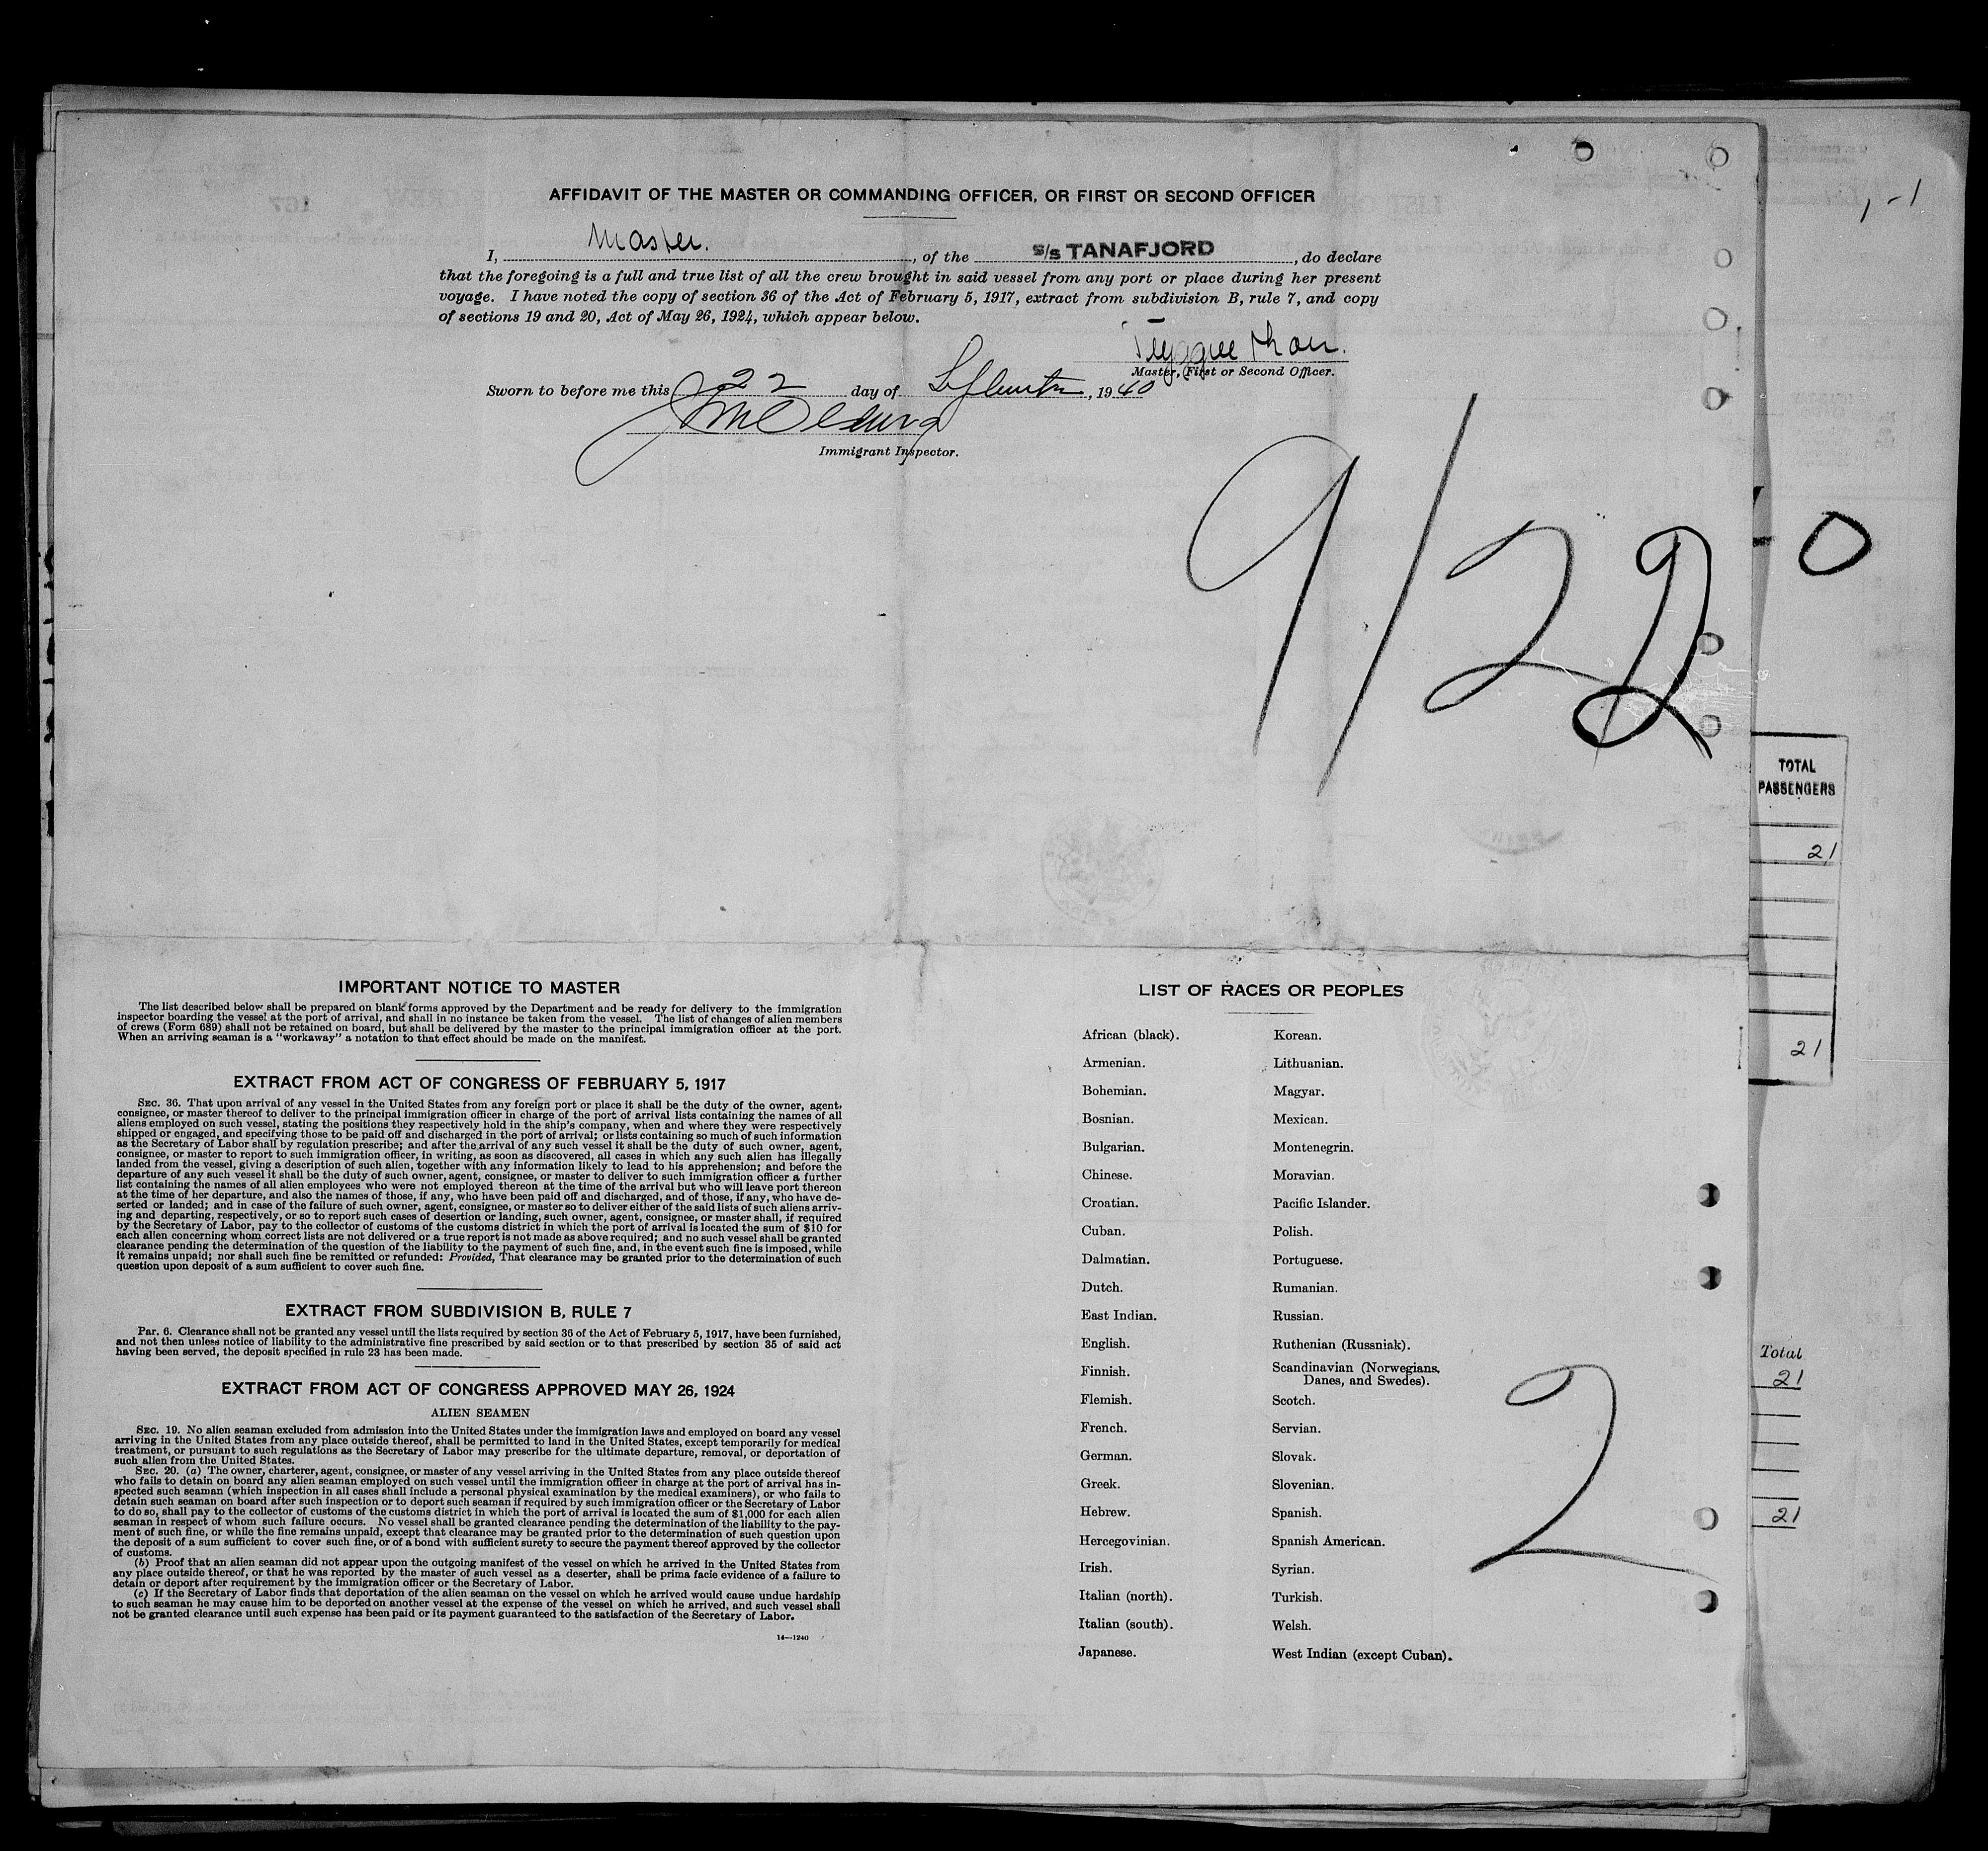 AFFIDAVIT OF THE MASTER OR COMMANDING OFFICER, OR FIRST OR SECOND OFFICER
I, Master., of the S/S TANAFJORD, do declare
that the foregoing is a full and true list of all the crew brought in said vessel from any port or place during her present
voyage. I have noted the copy of section 36 of the Act of February 5, 1917, extract from subdivision B, rule 7, and copy
of sections 19 and 20, Act of May 26, 1924, which appear below.
Master, First or Second Officer.
Sworn to before me this 22 day of September, 1940
Immigrant Inspector.
9/22
IMPORTANT NOTICE TO MASTER
The list described below shall be prepared on blank forms approved by the Department and be ready for delivery to the immigration
inspector boarding the vessel at the port of arrival, and shall in no instance be taken from the vessel. The list of changes of alien members
of crews (Form 689) shall not be retained on board, but shall be delivered by the master to the principal immigration officer at the port.
When an arriving seaman is a "workaway" a notation to that effect should be made on the manifest.
EXTRACT FROM ACT OF CONGRESS OF FEBRUARY 5, 1917
SEC. 36. That upon arrival of any vessel in the United States from any foreign port or place it shall be the duty of the owner, agent,
consignee, or master thereof to deliver to the principal immigration officer in charge of the port of arrival lists containing the names of all
aliens employed on such vessel, stating the positions they respectively hold in the ship's company, when and where they were respectively
shipped or engaged, and specifying those to be paid off and discharged in the port of arrival; or lists containing so much of such information
as the Secretary of Labor shall by regulation prescribe; and after the arrival of any such vessel it shall be the duty of such owner, agent,
consignee, or master to report to such immigration officer, in writing, as soon as discovered, all cases in which any such alien has illegally
landed from the vessel, giving a description of such alien, together with any information likely to lead to his apprehension; and before the
departure of any such vessel it shall be the duty of such owner, agent, consignee, or master to deliver to such immigration officer a further
list containing the names of all alien employees who were not employed thereon at the time of the arrival but who will leave port thereon
at the time of her departure, and also the names of those, if any, who have been paid off and discharged, and of those, if any, who have de-
serted or landed; and in case of the failure of such owner, agent, consignee, or master so to deliver either of the said lists of such aliens arriv-
ing and departing, respectively, or so to report such cases of desertion or landing, such owner, agent, consignee, or master shall, if required
by the Secretary of Labor, pay to the collector of customs of the customs district in which the port of arrival is located the sum of $10 for
each alien concerning whom correct lists are not delivered or a true report is not made as above required; and no such vessel shall be granted
clearance pending the determination of the question of the liability to the payment of such fine, and, in the event such fine is imposed, while
it remains unpaid; nor shall such fine be remitted or refunded: Provided, That clearance may be granted prior to the determination of such
question upon deposit of a sum sufficient to cover such fine.
EXTRACT FROM SUBDIVISION B, RULE 7
Par. 6. Clearance shall not be granted any vessel until the lists required by section 36 of the Act of February 5, 1917, have been furnished,
and not then unless notice of liability to the administrative fine prescribed by said section or to that prescribed by section 35 of said act
having been served, the deposit specified in rule 23 has been made.
EXTRACT FROM ACT OF CONGRESS APPROVED MAY 26, 1924
ALIEN SEAMEN
SEC. 19. No alien seaman excluded from admission into the United States under the immigration laws and employed on board any vessel
arriving in the United States from any place outside thereof, shall be permitted to land in the United States, except temporarily for medical
treatment, or pursuant to such regulations as the Secretary of Labor may prescribe for the ultimate departure, removal, or deportation of
such alien from the United States.
SEC. 20. (a) The owner, charterer, agent, consignee, or master of any vessel arriving in the United States from any place outside thereof
who fails to detain on board any alien seaman employed on such vessel until the immigration officer in charge at the port of arrival has in-
spected such seaman (which inspection in all cases shall include a personal physical examination by the medical examiners), or who fails to
detain such seaman on board after such inspection or to deport such seaman if required by such immigration officer or the Secretary of Labor
to do so, shall pay to the collector of customs of the customs district in which the port of arrival is located the sum of $1,000 for each alien
seaman in respect of whom such failure occurs. No vessel shall be granted clearance pending the determination of the liability to the pay-
ment of such fine, or while the fine remains unpaid, except that clearance may be granted prior to the determination of such question upon
the deposit of a sum sufficient to cover such fine, or of a bond with sufficient surety to secure the payment thereof approved by the collector
of customs.
(b) Proof that an alien seaman did not appear upon the outgoing manifest of the vessel on which he arrived in the United States from
any place outside thereof, or that he was reported by the master of such vessel as a deserter, shall be prima facie evidence of a failure to
detain or deport after requirement by the immigration officer or the Secretary of Labor.
(c) If the Secretary of Labor finds that deportation of the alien seaman on the vessel on which he arrived would cause undue hardship
to such seaman he may cause him to be deported on another vessel at the expense of the vessel on which he arrived, and such vessel shall
not be granted clearance until such expense has been paid or its payment guaranteed to the satisfaction of the Secretary of Labor.
14—1240
LIST OF RACES OR PEOPLES
African (black).
Armenian.
Bohemian.
Bosnian.
Bulgarian.
Chinese.
Croatian.
Cuban.
Dalmatian.
Dutch.
East Indian.
English.
Finnish.
Flemish.
French.
German.
Greek.
Hebrew.
Hercegovinian.
Irish.
Italian (north).
Italian (south).
Japanese.
Korean.
Lithuanian.
Magyar.
Mexican.
Montenegrin.
Moravian.
Pacific Islander.
Polish.
Portuguese.
Rumanian.
Russian.
Ruthenian (Russniak).
Scandinavian (Norwegians,
Danes, and Swedes).
Scotch.
Servian.
Slovak.
Slovenian.
Spanish.
Spanish American.
Syrian.
Turkish.
Welsh.
West Indian (except Cuban).
2
0
TOTAL
PASSENGERS
21
21
Total
21
21